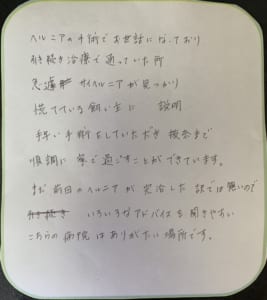 ヘルニアの手術でお世話になっており
引き続き治療で通っていた所
急遽 サイヘルニアが見つかり
慌てている飼い主に 説明
手早い手術をしていただき 抜糸まで
順調に 家で過ごすことができています。
まだ前回のヘルニアが完治した 訳では無いので
いろいろなアドバイスを聞きやすい
こちらの病院はありがたい場所です。